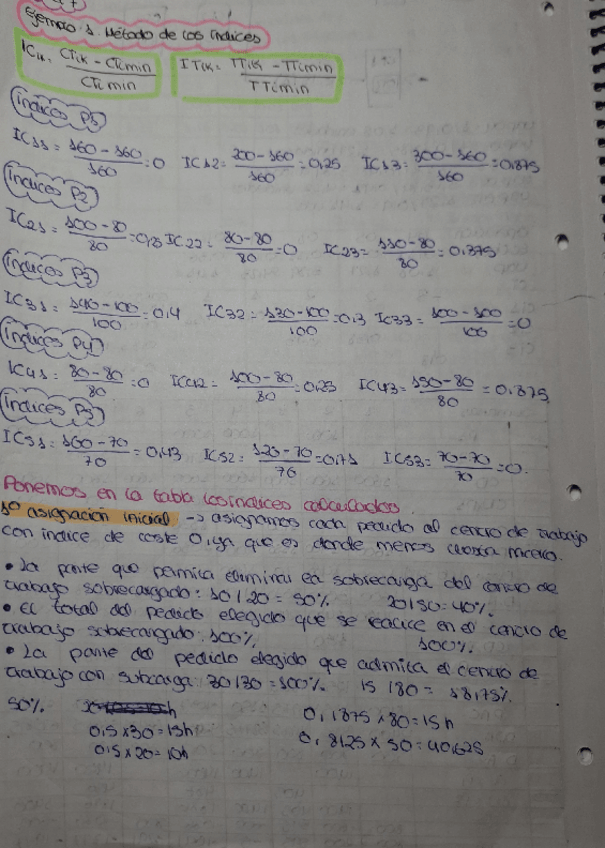 Ejemplo 1. Método de los índices
ICik = CTik - CTimin / CTimin ITik = TTik - TTimin / TTimin
Índices P1
IC11 = 160-160/160 = 0 IC12 = 200-160/160 = 0,25 IC13 = 300-160/160 = 0,875
Índices P2
IC21 = 100-80/80 = 0,25 IC22 = 80-80/80 = 0 IC23 = 110-80/80 = 0,375
Índices P3
IC31 = 140-100/100 = 0,4 IC32 = 130-100/100 = 0,3 IC33 = 100-100/100 = 0
Índices P4
IC41 = 80-80/80 = 0 IC42 = 100-80/80 = 0,25 IC43 = 150-80/80 = 0,875
Índices P5
IC51 = 160-70/70 = IC52 = 120-70/70 = 0,71 IC53 = 70-70/70 = 0.
Ponemos en la tabla los índices calculados.
1º asignación inicial -> asignamos cada pedido al centro de trabajo
con índice de coste 0, ya que es donde menos cuesta hacerlo.
• La parte que permita eliminar la sobrecarga del centro de
trabajo sobrecargado: 10/20 = 50% 20/50 = 40%
• El total del pedido elegido que se realice en el centro de
trabajo sobrecargado: 100% 100%
• La parte del pedido elegido que admita el centro de
trabajo con subcarga: 30/30 = 100% 15/80 = 18,75%
50% 0,1875 x 80 = 15h
0,5 x 30 = 15h 0,8125 x 50 = 40,625
0,5 x 20 = 10h